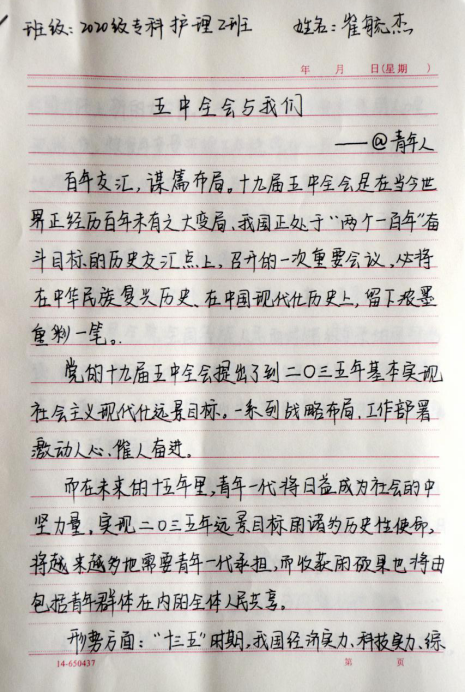 班级：2020级专科护理2班 姓名：崔毓杰
年 月 日(星期 )
五中全会与我们
——@青年人
百年交汇，谋篇布局。十九届五中全会是在当今世
界正经历百年未有之大变局、我国正处于“两个一百年”奋
斗目标的历史交汇点上，召开的一次重要会议，必将
在中华民族复兴历史、在中国现代化历史上，留下浓墨
重彩一笔。
党的十九届五中全会提出了到二〇三五年基本实现
社会主义现代化远景目标。一系列战略布局、工作部署
激动人心、催人奋进。
而在未来的十五年里，青年一代将日益成为社会的中
坚力量，实现二〇三五年远景目标的诸为历史性使命，
将越来越多地需要青年一代承担，而收获的硕果也将由
包括青年群体在内的全体人民共享。
形势方面：“十三五”时期，我国经济实力、科技实力、综
14-650437 第 页